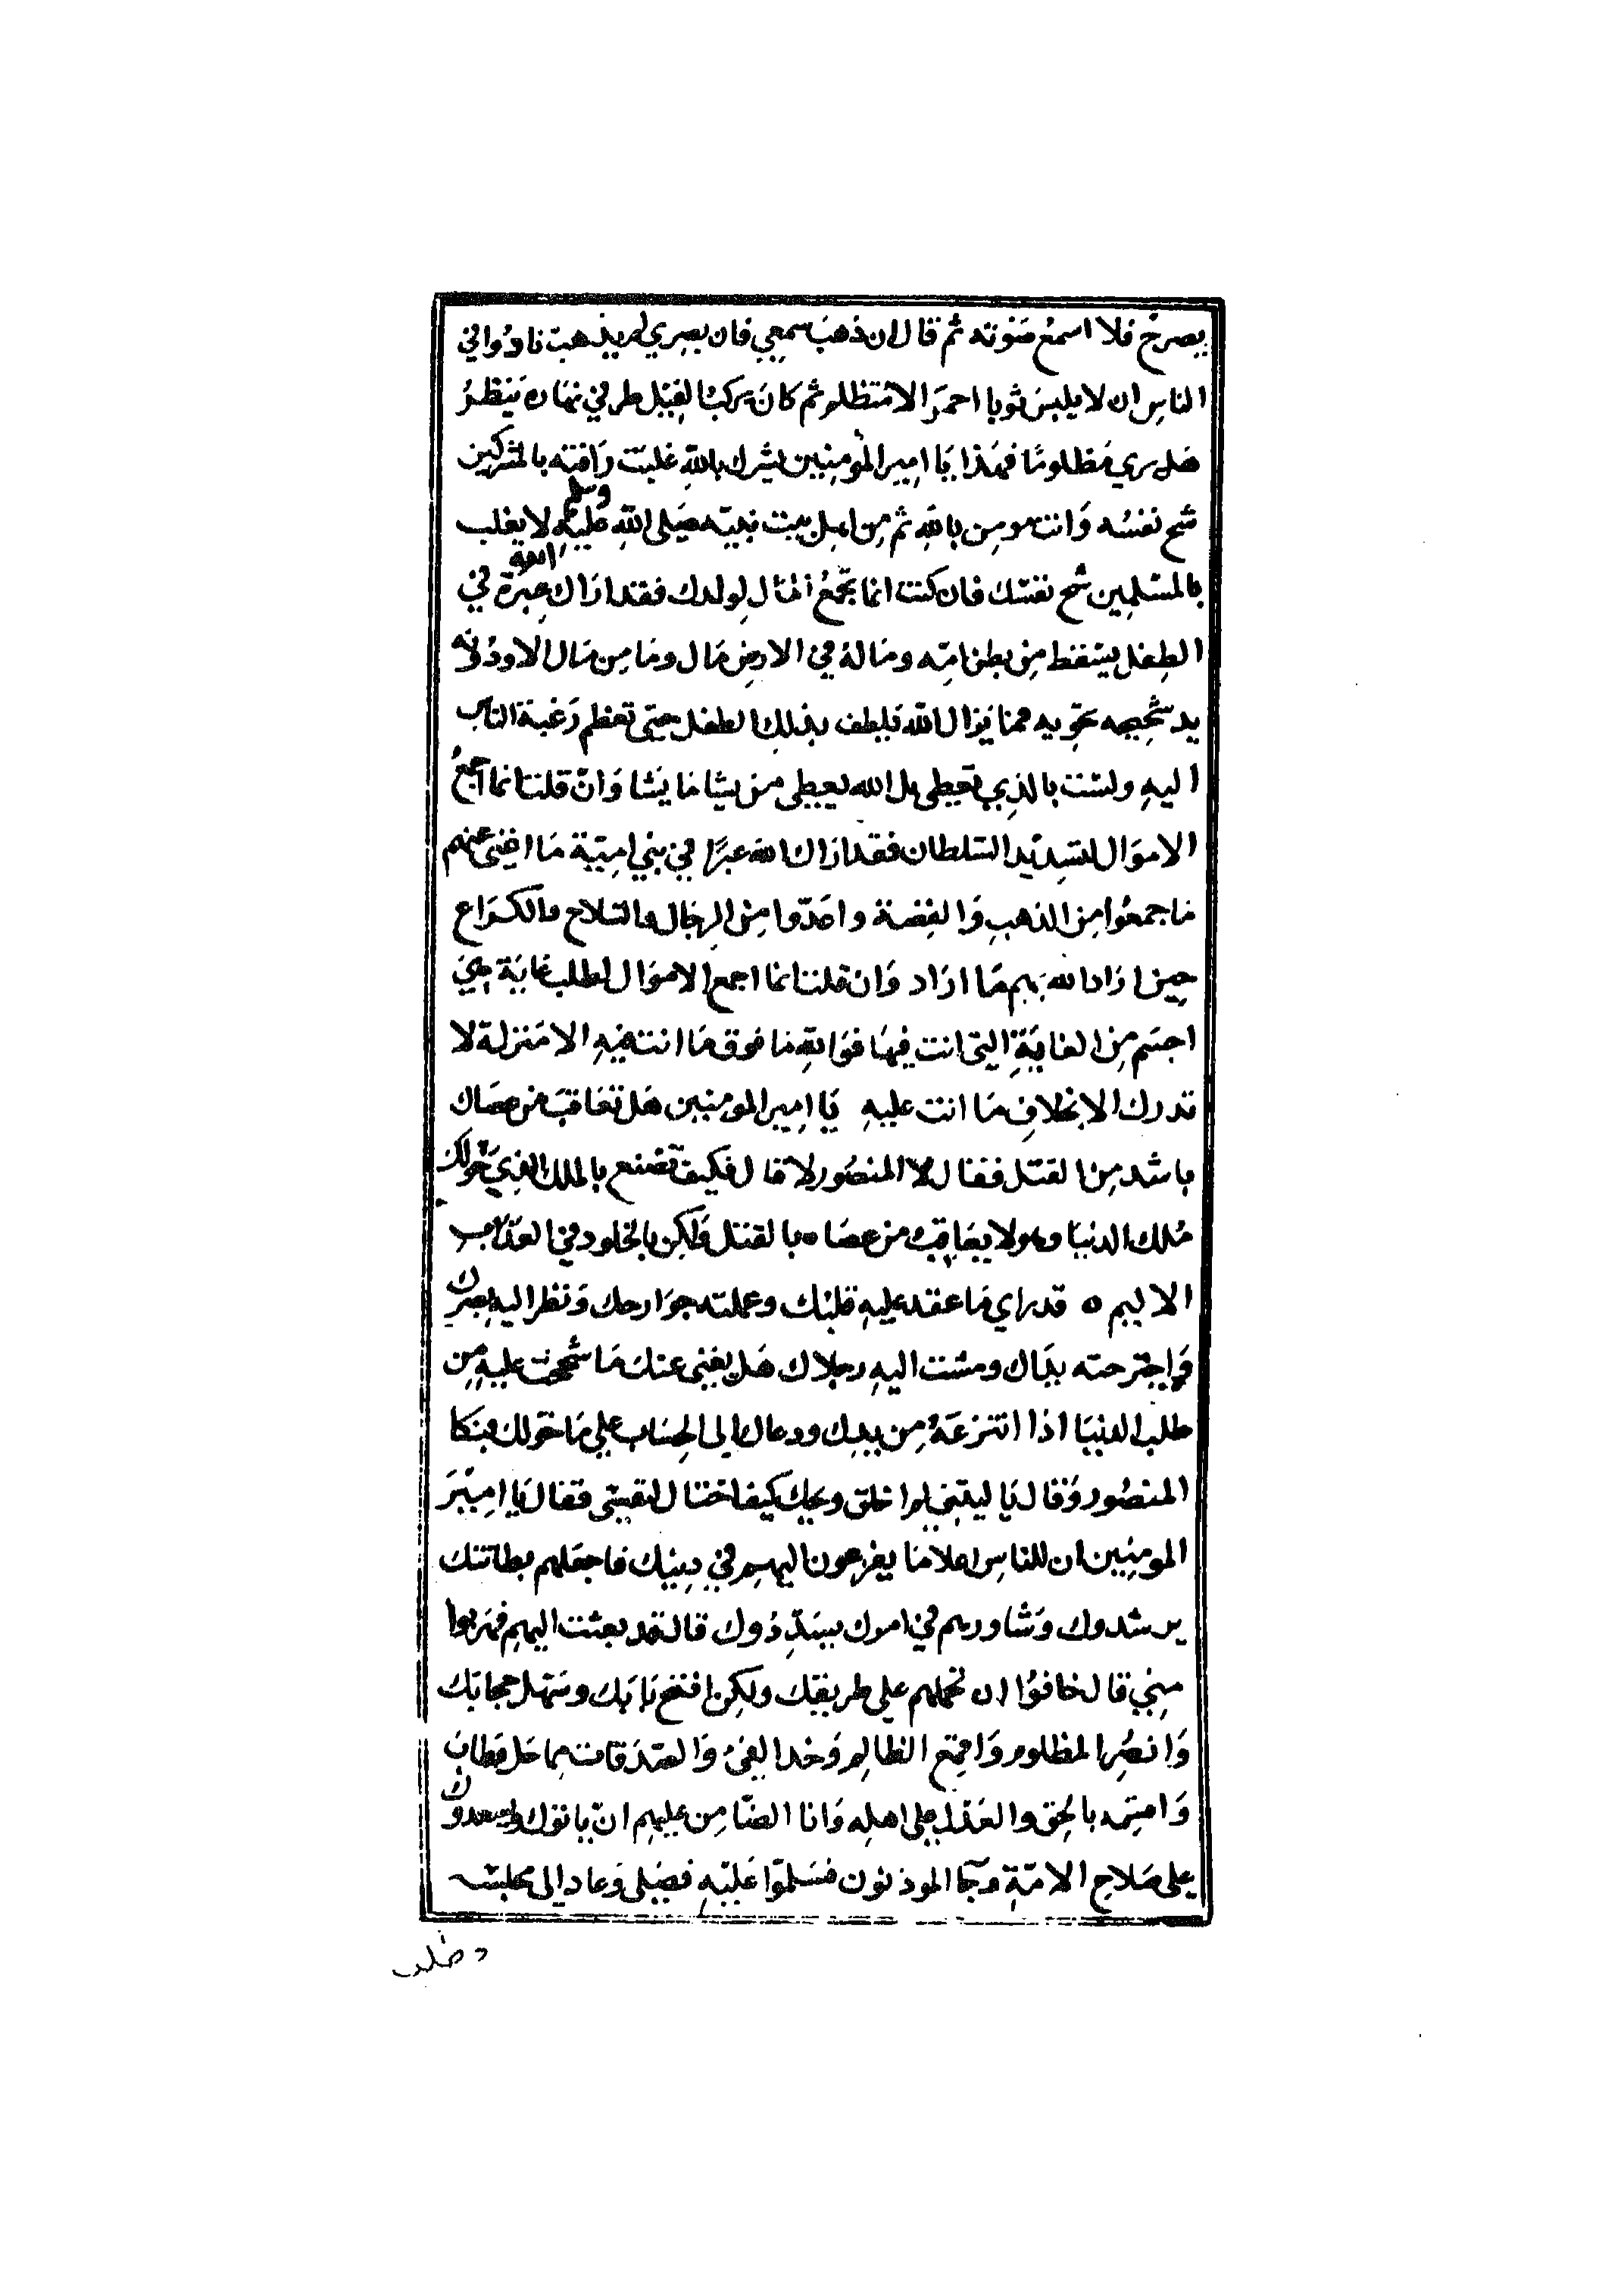 يصرخ فلا اسمع صوته ثم قال ان ذهب سمعي فان بصري لم يذهب نادوا في
الناس ان لا يلبس ثوبا احمر الا متظلم ثم كان يركب الفيل طرفي نهاره ينظر
هل يري مظلوما فهذا يا امير المومنين يشرك بالله غلبت رافته بالمشركين
شح نفسه وانت مومن بالله ثم من اهل بيت نبيه صلى الله عليه وسلم لا يغلب
بالمسلمين شح نفسك فان كنت انما تجمع المال لولدك فقد اراك الله عبرة في
الطفل يسقط من بطن امه وماله في الارض مال وما من مال الا ودونه
يد شحيحه تحويه فما يزال الله يلطف بذلك الطفل حتى تعظم رغبة الناس
اليه ولست بالذي تعطي بل الله يعطي من يشا ما يشا وان قلت انما اجمع
الاموال لتشديد السلطان فقد اراك الله عبرا في بني امية ما اغنى عنهم
ما جمعوا من الذهب والفضة واعدوا من الرجال والسلاح والكراع
حين اراد الله بهم ما اراد وان قلت انما اجمع الاموال لطلب غاية هي
اجسم من الغاية التي انت فيها فوالله ما فوق ما انت فيه الا منزلة لا
تدرك الا بخلاف ما انت عليه يا امير المومنين هل تعاقب من عصاك
باشد من القتل فقال المنصور لا قال فكيف تصنع بالملك الذي خولك
ملك الدنيا وهو لا يعاقب من عصاه بالقتل ولكن بالخلود في العذاب
الاليم ه قد راي ما عقد عليه قلبك وعملته جوارحك ونظر اليه بصرك
واجترحته يداك ومشت اليه رجلاك هل يغني عنك ما شححت عليه من
طلب الدنيا اذا انتزعه من يدك ودعاك الى الحساب علي ما خولك فبكا
المنصور وقال يا ليتني لم اخلق ويحك كيف احتال لنفسي فقال يا امير
المومنين ان للناس اعلاما يفزعون اليهم في دينك فاجعلهم بطانتك
يرشدوك وشاورهم في امرك يسددوك قال قد بعثت اليهم فهربوا
مني قال خافوا ان تحملهم علي طريقتك ولكن افتح بابك وسهل حجابك
وانصر المظلوم واقمع الظالم وخذ الفئ والصدقات مما حل وطاب
واقسمه بالحق والعدل على اهله وانا الضامن عليهم ان ياتوك ويسعدوك
على صلاح الامة وجا الموذنون فسلموا عليه فصلى وعاد الى مجلسه
وطلب